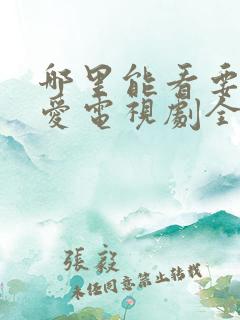 哪里能看要
爱电视剧全
张毅
未经同意禁止转载